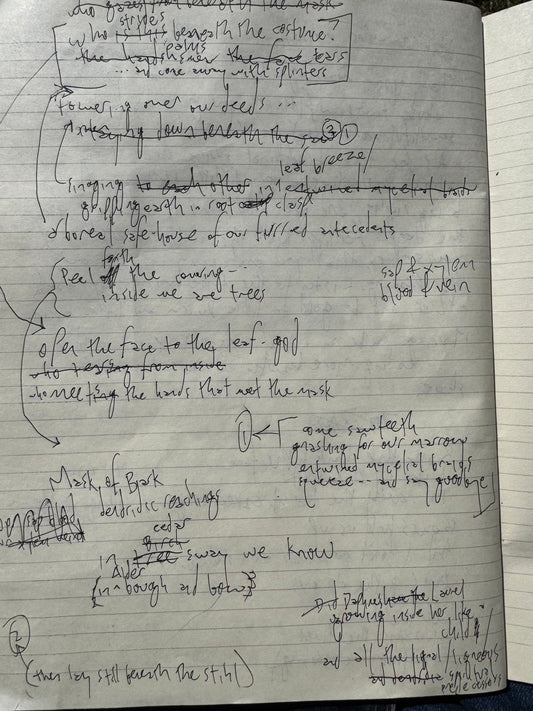 who beneath the mask
stripes
who beneath the costume?
palms
the face tears
... and come away with splinters
Towering over our deeds ...
down beneath the ③ ①
leaf breeze/
singing to each other in mycelial braids
gripping earth in root clasp
arboreal safe-house of our furred antecedents
forth
Peel off the covering ...
inside we are trees
sap & xylem
blood & vein
offer the face to the leaf-god
who tearing from inside
meeting the hands that meet the mask
① come sawteeth
gnashing for our marrow
entwined mycelial braids
squeeze ... and say goodbye
Mask of Bark
dendridic reachings
cedar
Birch
in tree sway we know
Alder
{in bough and bow}
Did Daphne the Laurel
growing inside her like
child
and all the lignal / ligneous
②
(then lay still beneath the Stihl)